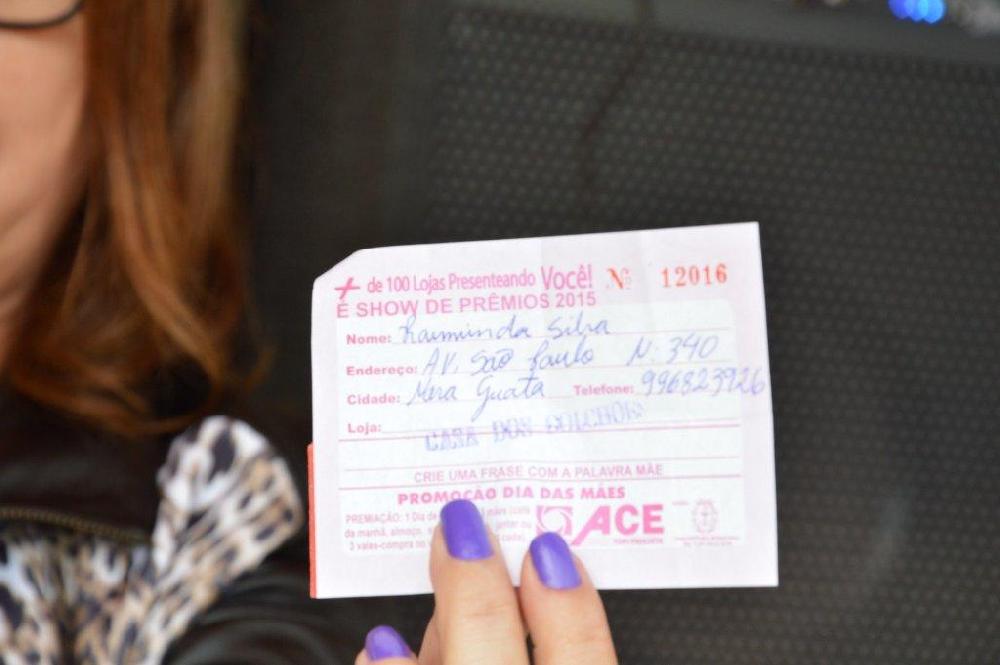 + de 100 Lojas Presenteando Você! Nº 12016
E SHOW DE PRÊMIOS 2015
Nome: Raimunda Silva
Endereço: AV. São Paulo N: 340
Cidade: Mera Guata Telefone: 996823926
Loja: CASA DOS COLCHOES
CRIE UMA FRASE COM A PALAVRA MÃE
PROMOÇÃO DIA DAS MÃES
PREMIAÇÃO: 1 Dia de
da manhã, almoço, jantar ou
3 vales-compra no
ACE